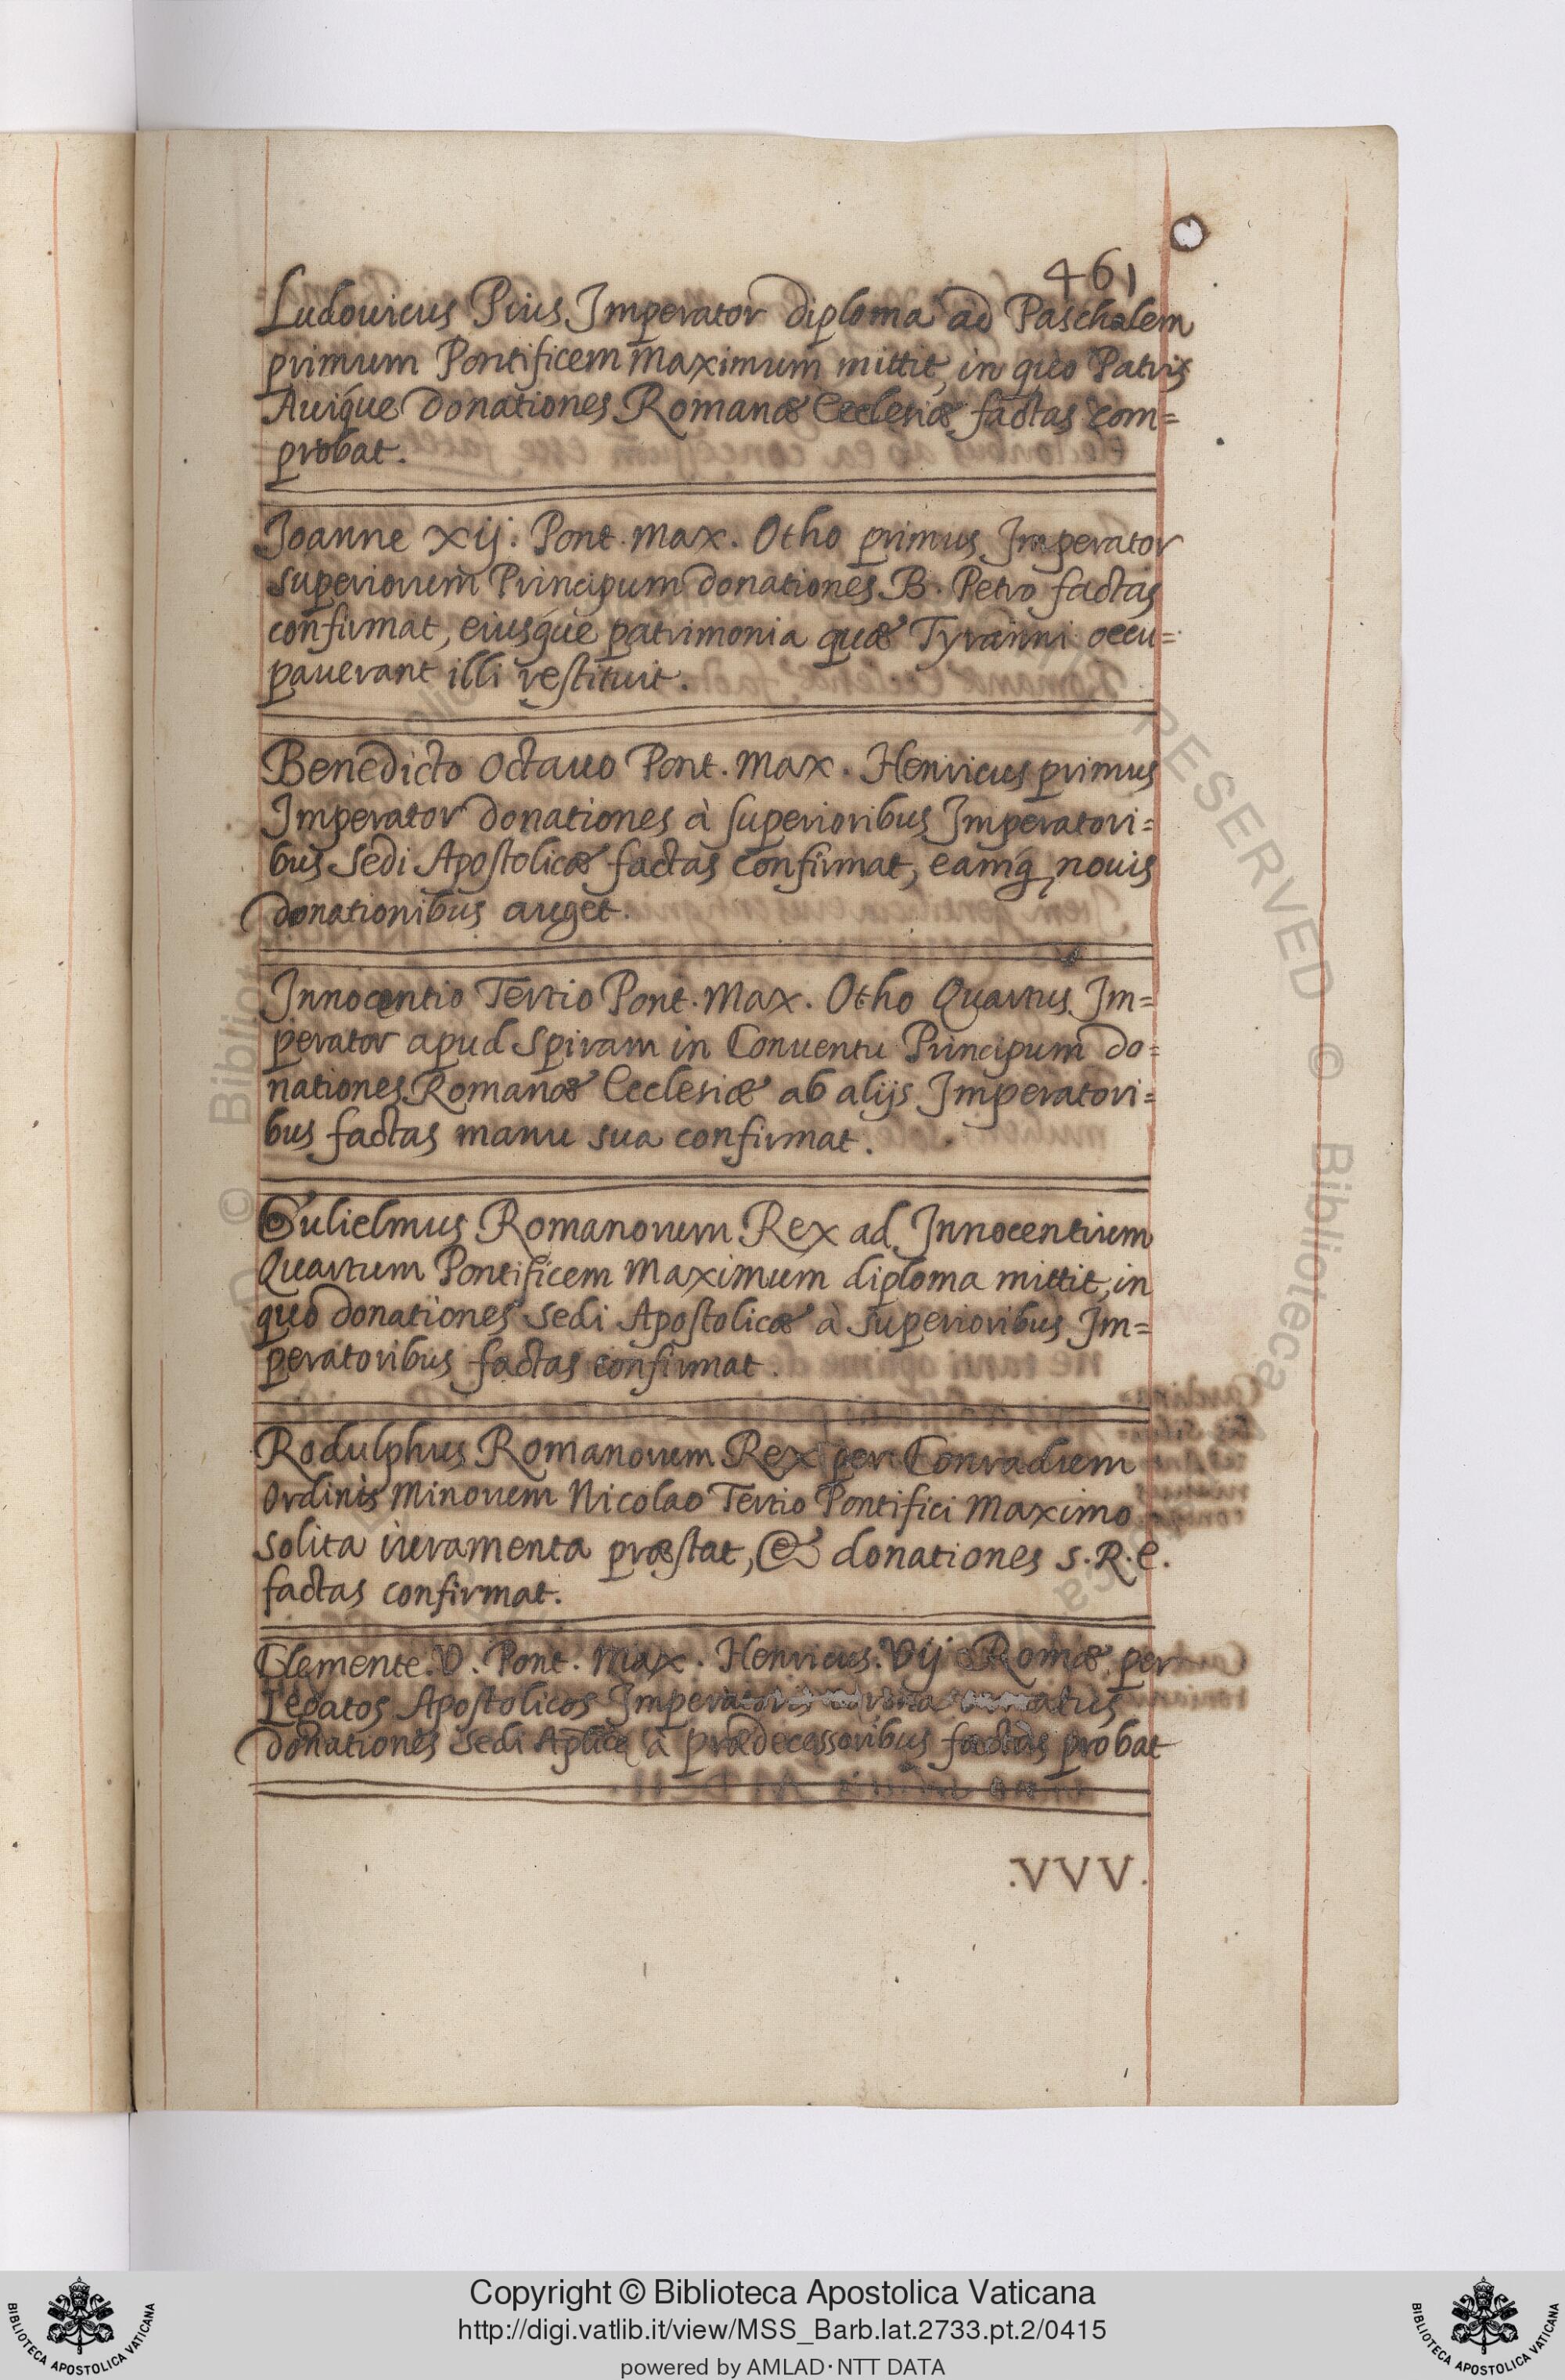 461
Ludouicus Pius Imperator diploma ad Paschalem
primum Pontificem Maximum mittit, in quo Patris
Auiq́ue donationes Romanæ Ecclesiæ factas com=
probat.
Joanne xij. Pont. Max. Otho primus Imperator
superiorum Principum donationes B. Petro factas
confirmat, eiusq́ue patrimonia quæ Tyranni occu=
pauerant illi restituit.
Benedicto Octauo Pont. Max. Henricus primus
Imperator donationes à superioribus Imperatori=
bus Sedi Apostolicæ factas confirmat, eamq́; nouis
donationibus auget.
Innocentio Tertio Pont. Max. Otho Quartus Im=
perator apud Spiram in Conuentu Principum do=
nationes Romanæ Ecclesiæ ab alijs Imperatori=
bus factas manu sua confirmat.
Gulielmus Romanorum Rex ad Innocentium
Quartum Pontificem Maximum diploma mittit, in
quo donationes Sedi Apostolicæ à superioribus Im=
peratoribus factas confirmat.
Rodulphus Romanorum Rex per Conradum
Ordinis Minorum Nicolao Tertio Pontifici Maximo
solita iuramenta præstat, & donationes S. R. E.
factas confirmat.
Clemente. V. Pont. Max. Henricus. Vij Romæ per
Legatos Apostolicos
donationes Sedi Aplicę à prædecessoribus factas probat
.VVV.
Copyright © Biblioteca Apostolica Vaticana
http://digi.vatlib.it/view/MSS_Barb.lat.2733.pt.2/0415
powered by AMLAD·NTT DATA
BIBLIOTECA APOSTOLICA VATICANA
BIBLIOTECA APOSTOLICA VATICANA